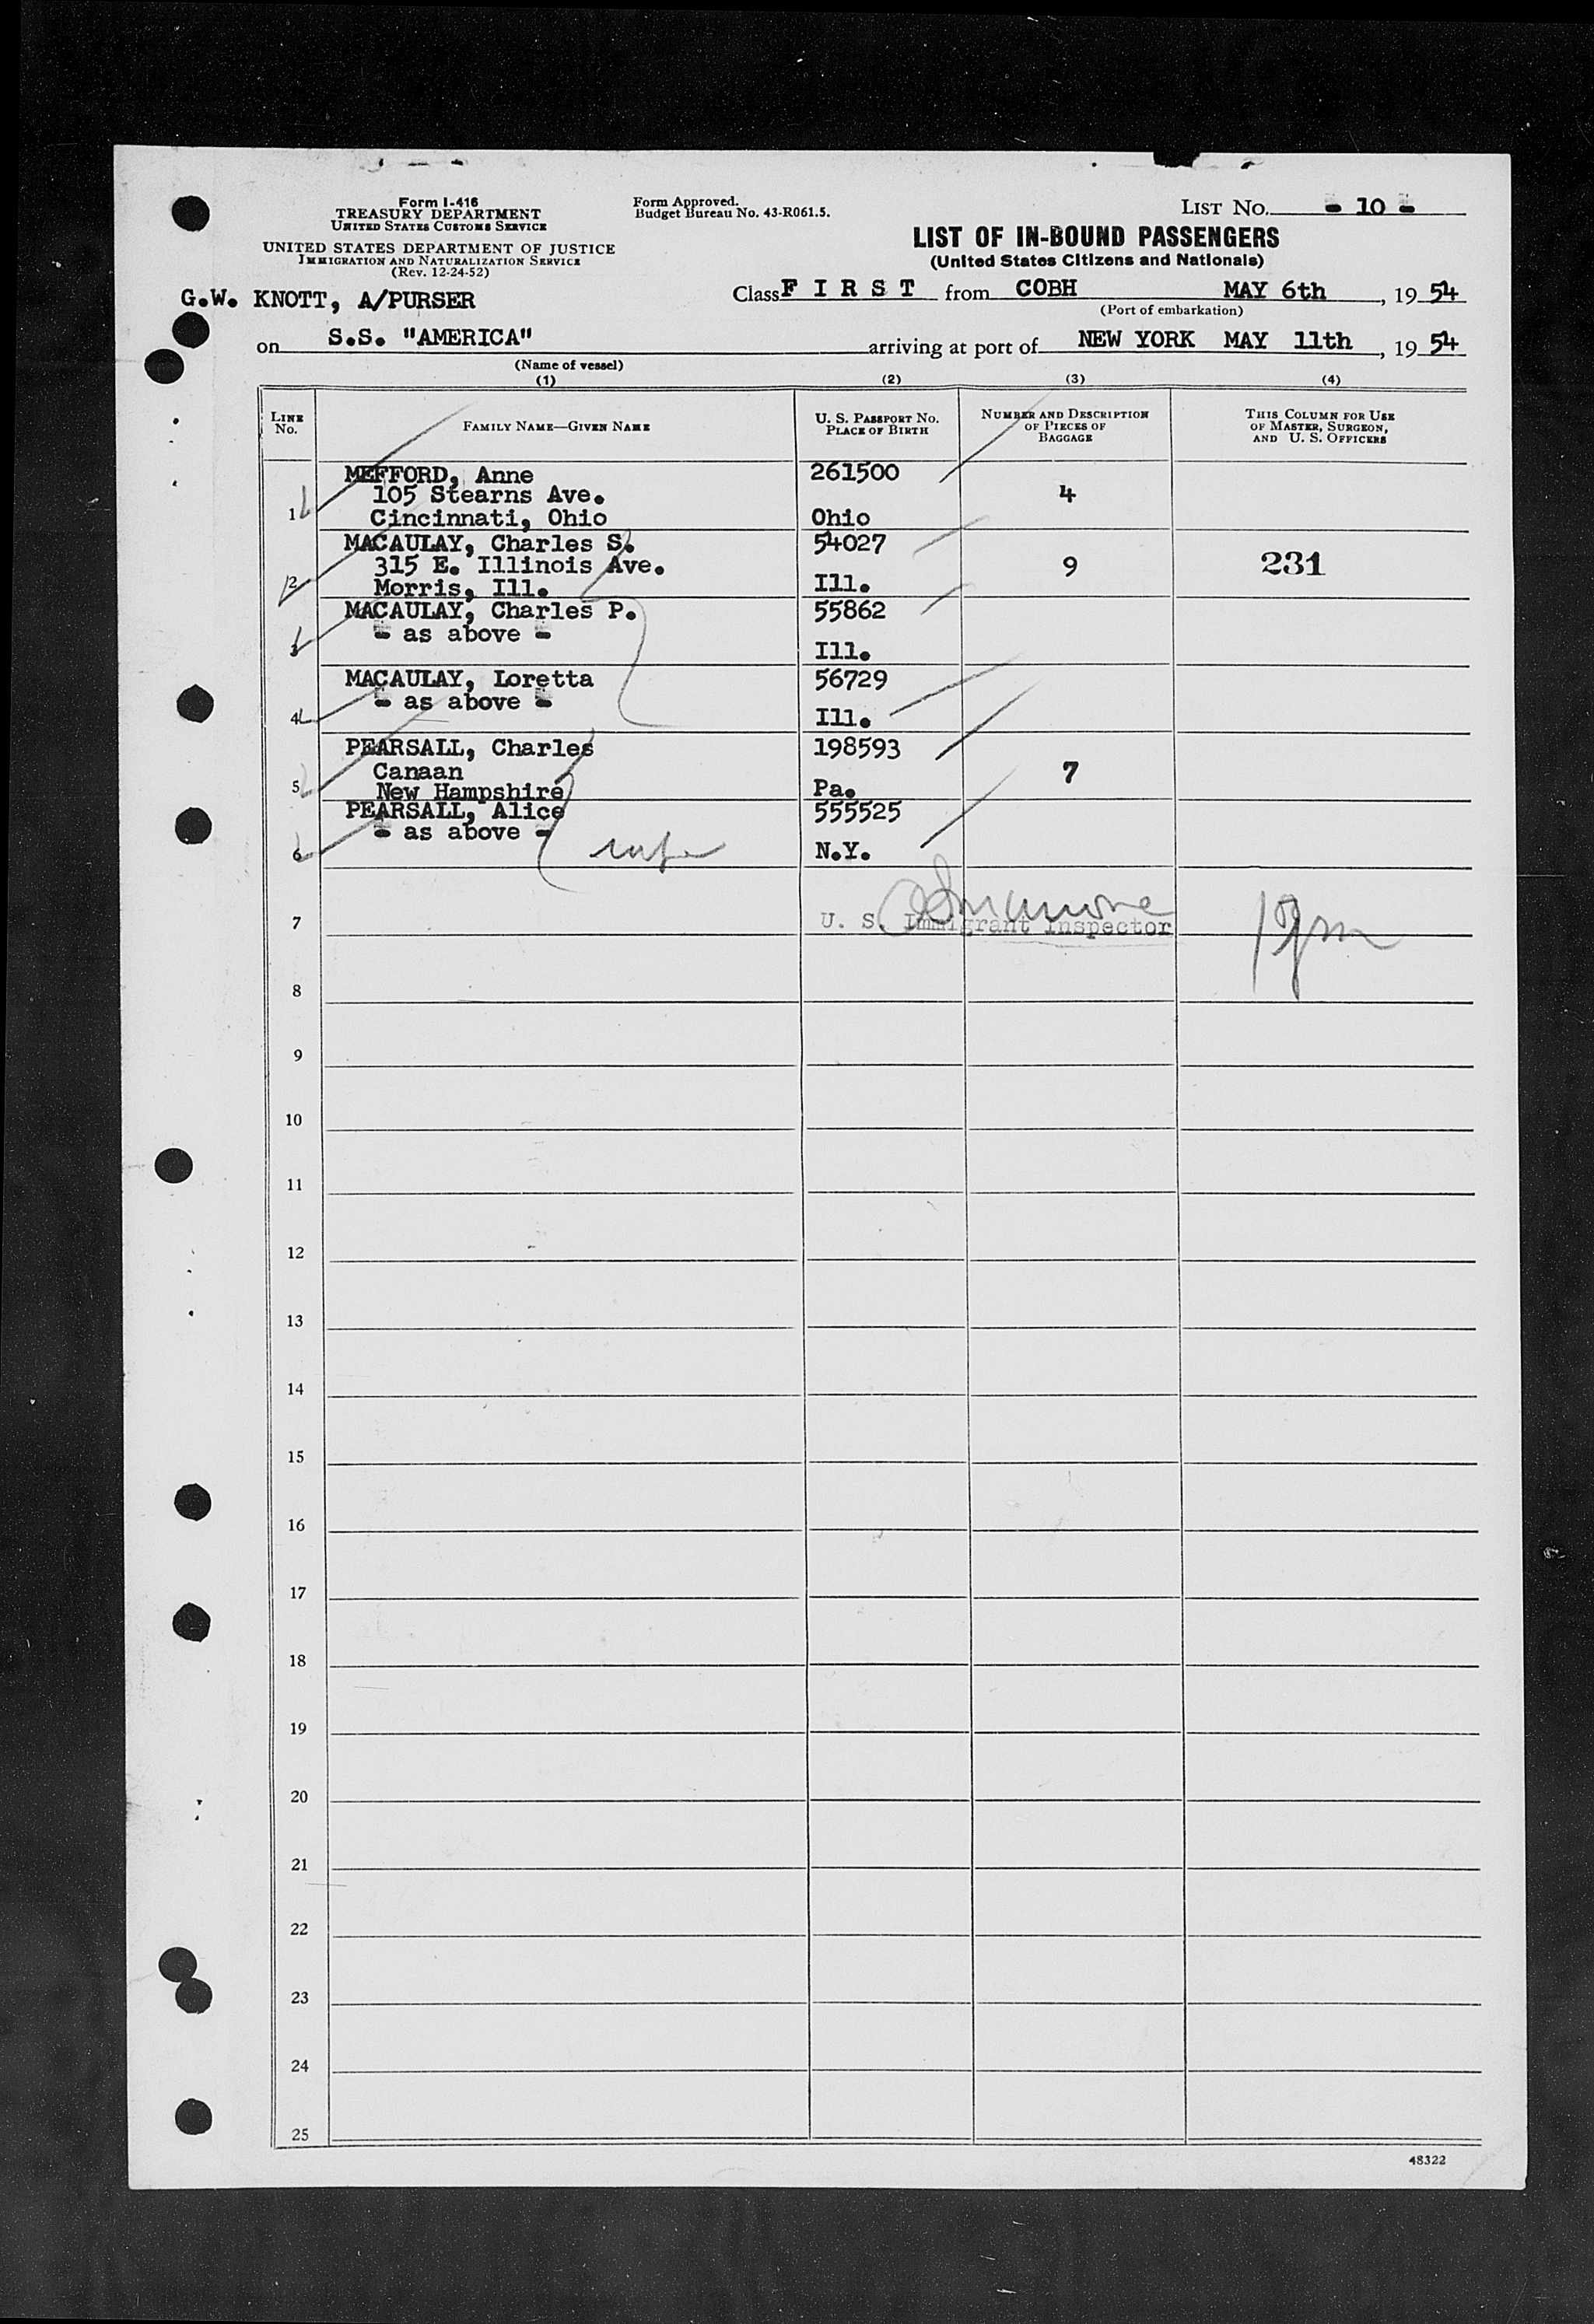 Form I-416
TREASURY DEPARTMENT
UNITED STATES CUSTOMS SERVICE
UNITED STATES DEPARTMENT OF JUSTICE
IMMIGRATION AND NATURALIZATION SERVICE
(Rev. 12-24-52)
Form Approved.
Budget Bureau No. 43-R061.5.
LIST No. - 10 -
LIST OF IN-BOUND PASSENGERS
(United States Citizens and Nationals)
G.W. KNOTT, A/PURSER
Class F I R S T from COBH MAY 6th, 19 54
(Port of embarkation)
on S.S. "AMERICA" arriving at port of NEW YORK MAY 11th, 19 54
(Name of vessel)
(1) (2) (3) (4)
LINE No. FAMILY NAME—GIVEN NAME U. S. PASSPORT No. PLACE OF BIRTH NUMBER AND DESCRIPTION OF PIECES OF BAGGAGE THIS COLUMN FOR USE OF MASTER, SURGEON, AND U. S. OFFICERS
MEFFORD, Anne 261500
105 Stearns Ave. 4
1 Cincinnati, Ohio Ohio
MACAULAY, Charles S. 54027
315 E. Illinois Ave. 9 231
2 Morris, Ill. Ill.
MACAULAY, Charles P. 55862
- as above -
3 Ill.
MACAULAY, Loretta 56729
- as above -
4 Ill.
PEARSALL, Charles 198593
Canaan 7
5 New Hampshire Pa.
PEARSALL, Alice 555525
- as above -
6 N.Y.
7 U. S. Immigrant Inspector
8
9
10
11
12
13
14
15
16
17
18
19
20
21
22
23
24
25
48322